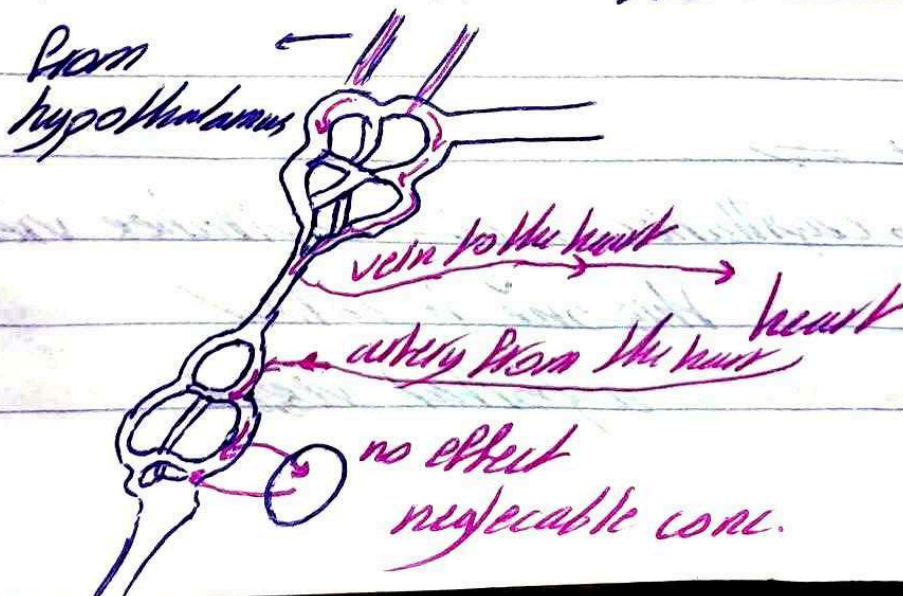 from
hypothalamus
vein to the heart
heart
artery from the heart
no effect
neglecable conc.